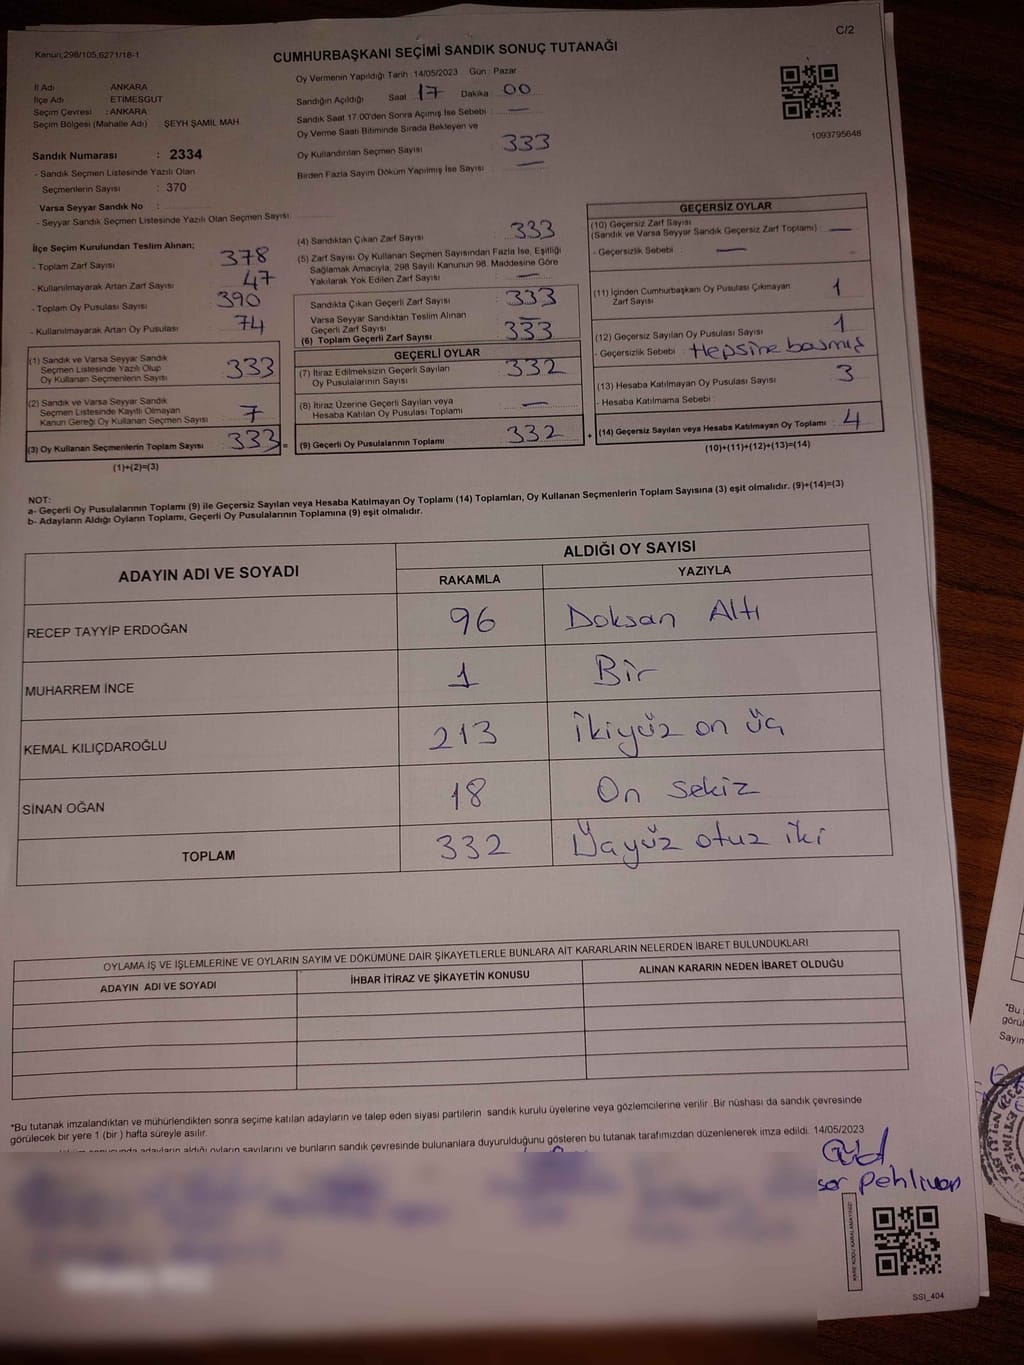 Kanun;298/105,6271/18-1
C/2
CUMHURBAŞKANI SEÇİMİ SANDIK SONUÇ TUTANAĞI
İl Adı : ANKARA
İlçe Adı : ETİMESGUT
Seçim Çevresi : ANKARA
Seçim Bölgesi (Mahalle Adı) : ŞEYH ŞAMİL MAH.
Sandık Numarası : 2334
- Sandık Seçmen Listesinde Yazılı Olan
Seçmenlerin Sayısı : 370
Varsa Seyyar Sandık No :
- Seyyar Sandık Seçmen Listesinde Yazılı Olan Seçmen Sayısı:
Oy Vermenin Yapıldığı Tarih : 14/05/2023 Gün : Pazar
Sandığın Açıldığı Saat : 17 Dakika : 00
Sandık Saat 17.00'den Sonra Açımış İse Sebebi : —
Oy Verme Saati Bitiminde Sırada Bekleyen ve
Oy Kullandırılan Seçmen Sayısı : 333
Birden Fazla Sayım Döküm Yapılmış İse Sayısı : —
1093795648
İlçe Seçim Kurulundan Teslim Alınan;
- Toplam Zarf Sayısı : 378
- Kullanılmayarak Artan Zarf Sayısı : 47
- Toplam Oy Pusulası Sayısı : 390
- Kullanılmayarak Artan Oy Pusulası : 74
(1) Sandık ve Varsa Seyyar Sandık
Seçmen Listesinde Yazılı Olup
Oy Kullanan Seçmenlerin Sayısı : 333
(2) Sandık ve Varsa Seyyar Sandık
Seçmen Listesinde Kayıtlı Olmayan
Kanun Gereği Oy Kullanan Seçmen Sayısı : 7
(3) Oy Kullanan Seçmenlerin Toplam Sayısı : 333 =
(1)+(2)=(3)
(4) Sandıktan Çıkan Zarf Sayısı : 333
(5) Zarf Sayısı Oy Kullanan Seçmen Sayısından Fazla İse, Eşitliği
Sağlamak Amacıyla; 298 Sayılı Kanunun 98. Maddesine Göre
Yakılarak Yok Edilen Zarf Sayısı : —
Sandıkta Çıkan Geçerli Zarf Sayısı : 333
Varsa Seyyar Sandıktan Teslim Alınan
Geçerli Zarf Sayısı : —
(6) Toplam Geçerli Zarf Sayısı : 333
GEÇERLİ OYLAR
(7) İtiraz Edilmeksizin Geçerli Sayılan
Oy Pusulalarının Sayısı : 332
(8) İtiraz Üzerine Geçerli Sayılan veya
Hesaba Katılan Oy Pusulası Toplamı : —
(9) Geçerli Oy Pusulalarının Toplamı : 332 +
GEÇERSİZ OYLAR
(10) Geçersiz Zarf Sayısı
(Sandık ve Varsa Seyyar Sandık Geçersiz Zarf Toplamı) : —
- Geçersizlik Sebebi : —
(11) İçinden Cumhurbaşkanı Oy Pusulası Çıkmayan
Zarf Sayısı : 1
(12) Geçersiz Sayılan Oy Pusulası Sayısı : 1
- Geçersizlik Sebebi : Hepsine basmış
(13) Hesaba Katılmayan Oy Pusulası Sayısı : 3
- Hesaba Katılmama Sebebi :
(14) Geçersiz Sayılan veya Hesaba Katılmayan Oy Toplamı : 4
(10)+(11)+(12)+(13)=(14)
NOT:
a- Geçerli Oy Pusulalarının Toplamı (9) ile Geçersiz Sayılan veya Hesaba Katılmayan Oy Toplamı (14) Toplamları, Oy Kullanan Seçmenlerin Toplam Sayısına (3) eşit olmalıdır. (9)+(14)=(3)
b- Adayların Aldığı Oyların Toplamı, Geçerli Oy Pusulalarının Toplamına (9) eşit olmalıdır.
ADAYIN ADI VE SOYADI
ALDIĞI OY SAYISI
RAKAMLA YAZIYLA
RECEP TAYYİP ERDOĞAN 96 Doksan Altı
MUHARREM İNCE 1 Bir
KEMAL KILIÇDAROĞLU 213 ikiyüz on üç
SİNAN OĞAN 18 On sekiz
TOPLAM 332 Üçyüz otuz iki
OYLAMA İŞ VE İŞLEMLERİNE VE OYLARIN SAYIM VE DÖKÜMÜNE DAİR ŞİKAYETLERLE BUNLARA AİT KARARLARIN NELERDEN İBARET BULUNDUKLARI
ADAYIN ADI VE SOYADI İHBAR İTİRAZ VE ŞİKAYETİN KONUSU ALINAN KARARIN NEDEN İBARET OLDUĞU
*Bu tutanak imzalandıktan ve mühürlendikten sonra seçime katılan adayların ve talep eden siyasi partilerin sandık kurulu üyelerine veya gözlemcilerine verilir .Bir nüshası da sandık çevresinde
görülecek bir yere 1 (bir ) hafta süreyle asılır.
adayların aldığı oyların sayılarını ve bunların sandık çevresinde bulunanlara duyurulduğunu gösteren bu tutanak tarafımızdan düzenlenerek imza edildi. 14/05/2023
Pehlivan
SSI_404
*Bu
görül
Sayım